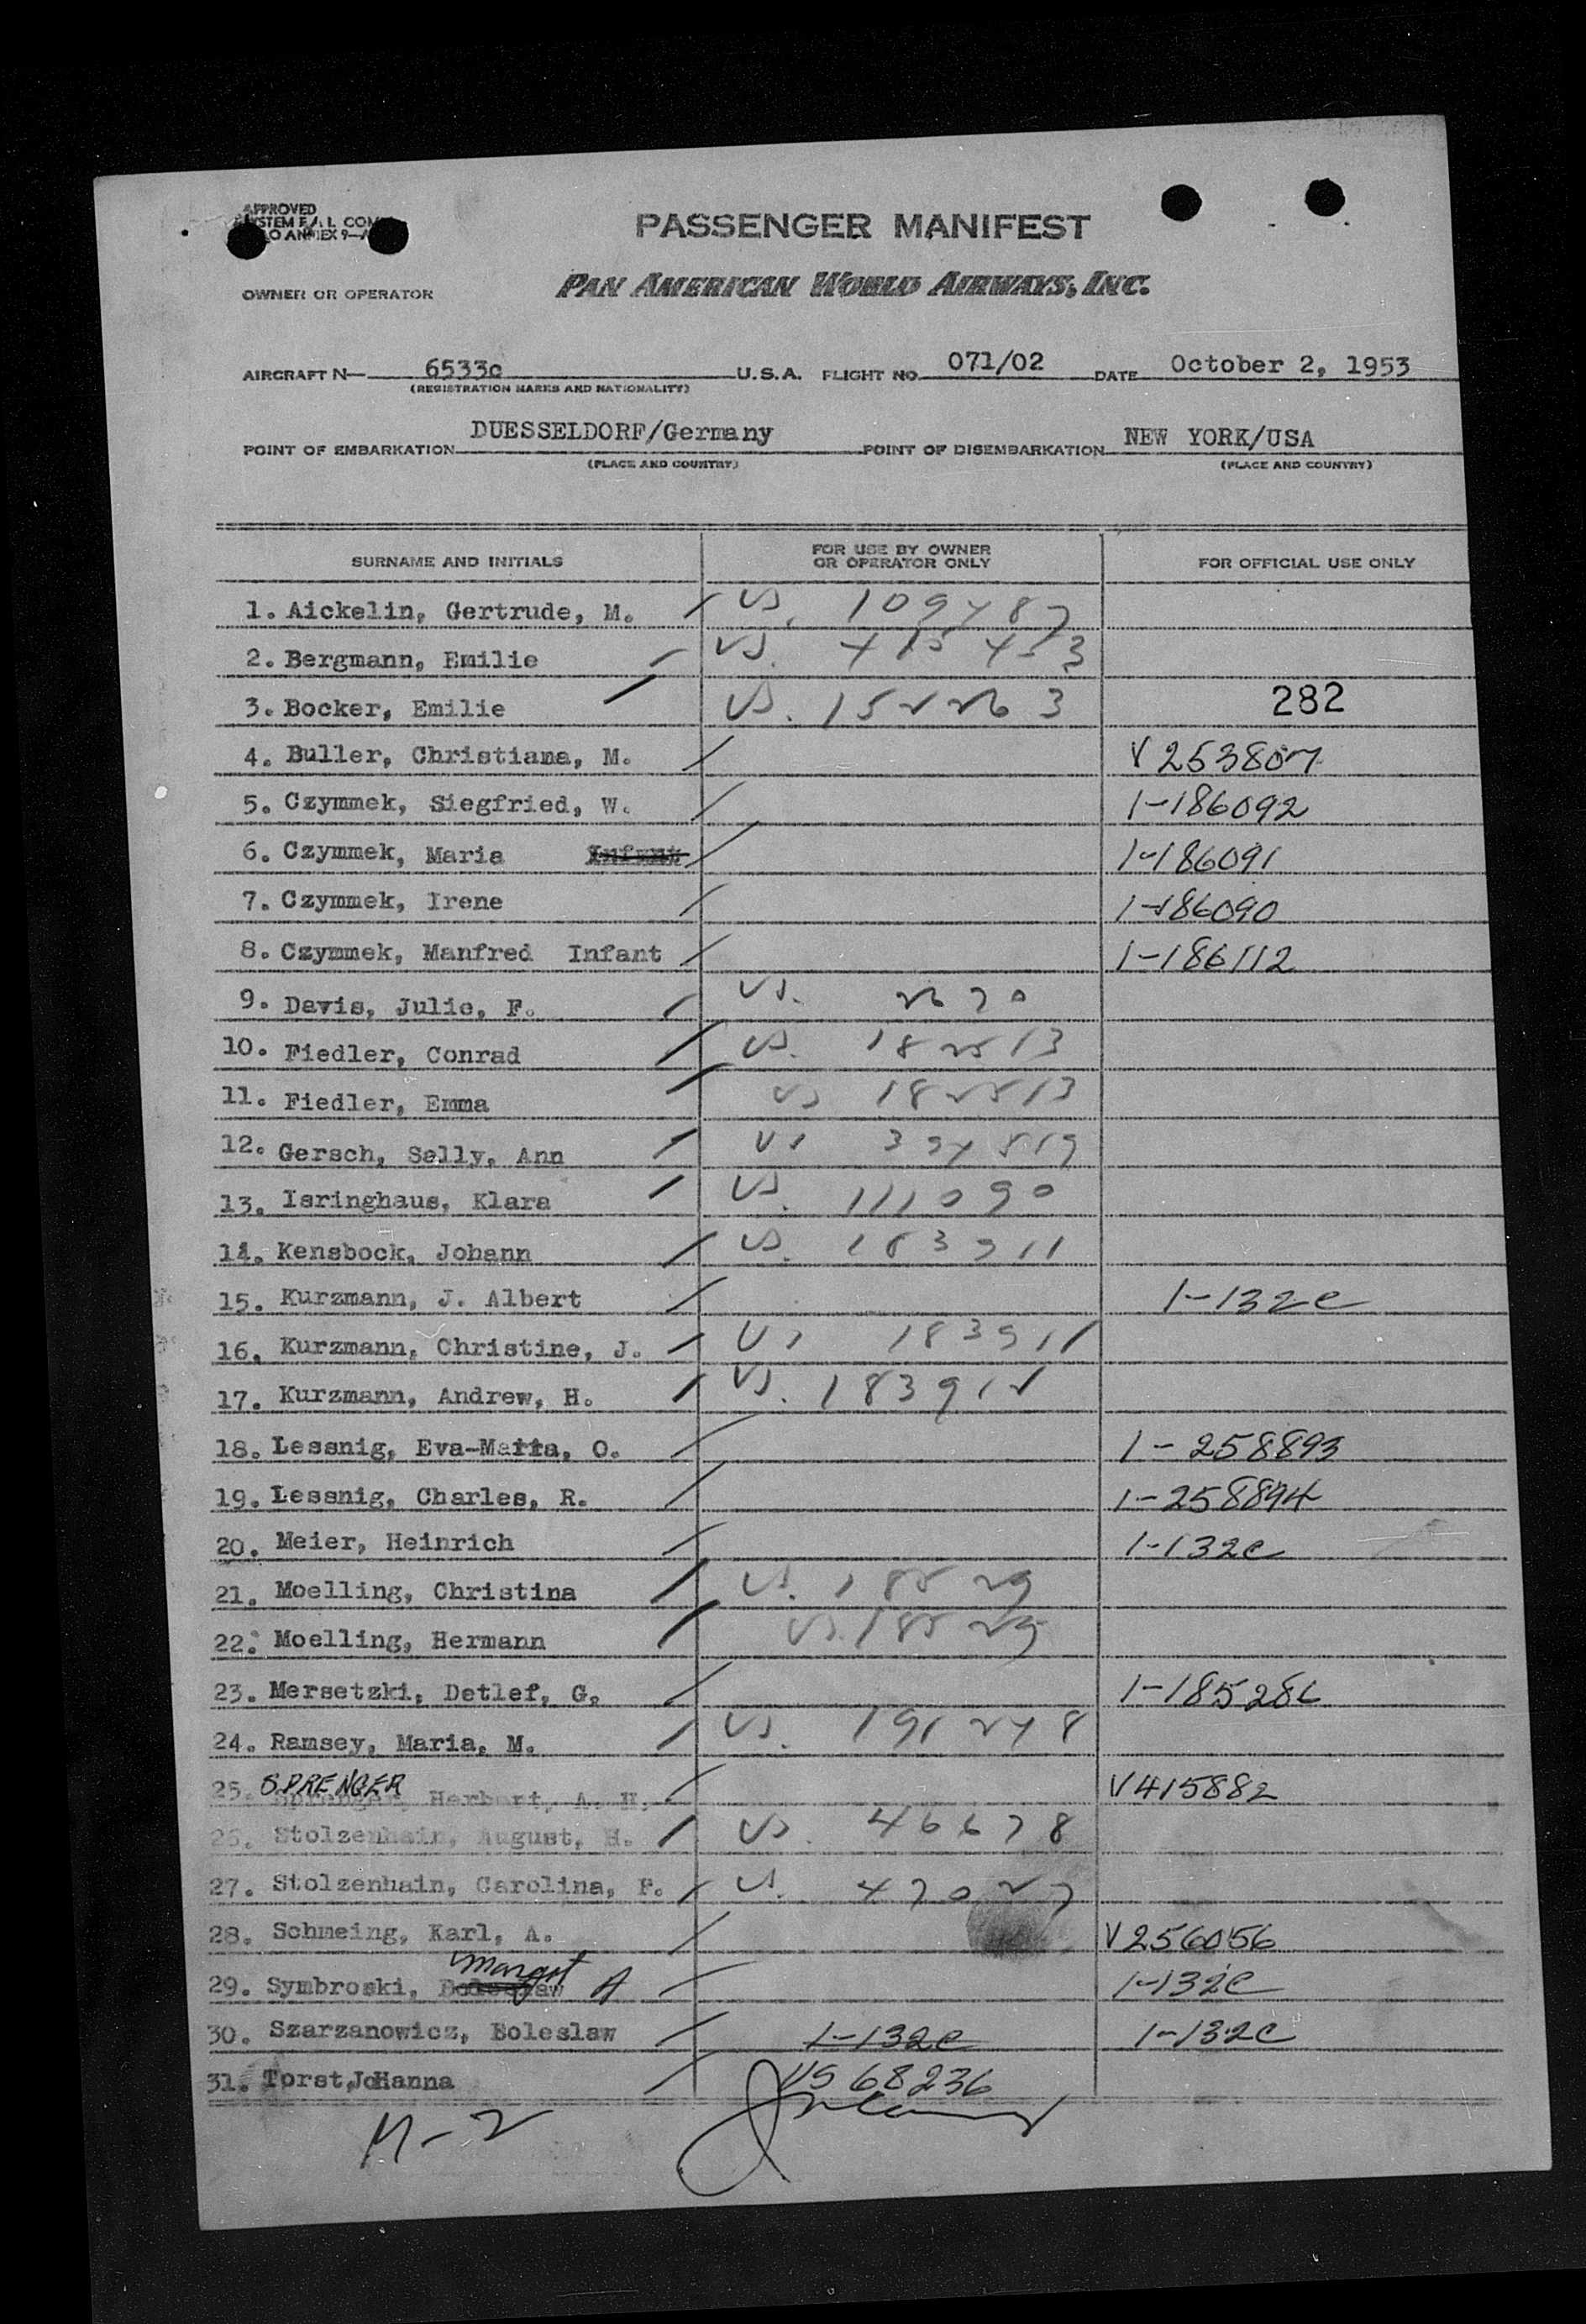 APPROVED
SYSTEM F.A.L. COM
ANNEX 9-A
PASSENGER MANIFEST
OWNER OR OPERATOR PAN AMERICAN WORLD AIRWAYS, INC.
AIRCRAFT N— 6533c U.S.A. FLIGHT NO. 071/02 DATE October 2, 1953
(REGISTRATION MARKS AND NATIONALITY)
POINT OF EMBARKATION DUESSELDORF/Germany POINT OF DISEMBARKATION NEW YORK/USA
(PLACE AND COUNTRY) (PLACE AND COUNTRY)
SURNAME AND INITIALS FOR USE BY OWNER OR OPERATOR ONLY FOR OFFICIAL USE ONLY
1. Aickelin, Gertrude, M. / US. 109487
2. Bergmann, Emilie / US. 415453
3. Bocker, Emilie / US. 152263 282
4. Buller, Christiana, M. / V 253807
5. Czymmek, Siegfried, W. / 1-186092
6. Czymmek, Maria Infant / 1-186091
7. Czymmek, Irene / 1-186090
8. Czymmek, Manfred Infant / 1-186112
9. Davis, Julie, F. / US. 2670
10. Fiedler, Conrad / US. 182513
11. Fiedler, Emma / US 182513
12. Gersch, Sally, Ann / US 394819
13. Isringhaus, Klara / US. 111090
14. Kensbock, Johann / US. 183911
15. Kurzmann, J. Albert / 1-132c
16. Kurzmann, Christine, J. / US 183911
17. Kurzmann, Andrew, H. / US. 183912
18. Lessnig, Eva-Maria, O. / 1-258893
19. Lessnig, Charles, R. / 1-258894
20. Meier, Heinrich / 1-132c
21. Moelling, Christina / US. 18529
22. Moelling, Hermann / US. 18529
23. Mersetzki, Detlef, G. / 1-185286
24. Ramsey, Maria, M. / US. 191248
25. SPRENGER Sprenger, Herbert, A. H. / V415882
26. Stolzenhain, August, H. / US. 46678
27. Stolzenhain, Carolina, F. / US. 47027
28. Schmeing, Karl, A. / V256056
29. Symbroski, Boleslaw Margot A / 1-132c
30. Szarzanowicz, Boleslaw / 1-132c 1-132c
31. Torst, JoHanna / US 68236
M-2